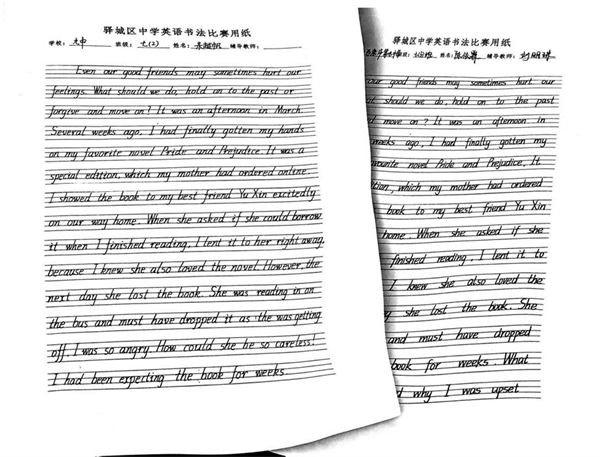 驿城区中学英语书法比赛用纸
学校: 七(2) 姓名: 辅导教师:
Even our good friends may sometimes hurt our
feelings. What should we do, hold on to the past or
forgive and move on? It was an afternoon in March.
Several weeks ago, I had finally gotten my hands
on my favorite novel Pride and Prejudice. It was a
special edition, which my mother had ordered online.
I showed the book to my best friend Yu Xin excitedly
on our way home. When she asked if she could borrow
it when I finished reading, I lent it to her right away,
because I knew she also loved the novel. However, the
next day she lost the book. She was reading in on
the bus and must have dropped it as the was getting
off. I was so angry. How could she be so careless!
I had been expecting the book for weeks
驿城区中学英语书法比赛用纸
姓名: 辅导教师:
our good friends may sometimes hurt our
should we do, hold on to the past
move on? It was an afternoon in
weeks ago, I had finally gotten my
novel Pride and Prejudice. It
which my mother had ordered
book to my best friend Yu Xin
home. When she asked if she
finished reading, I lent it to
I knew she also loved the
she lost the book. She
and must have dropped
book for weeks. What
why I was upset